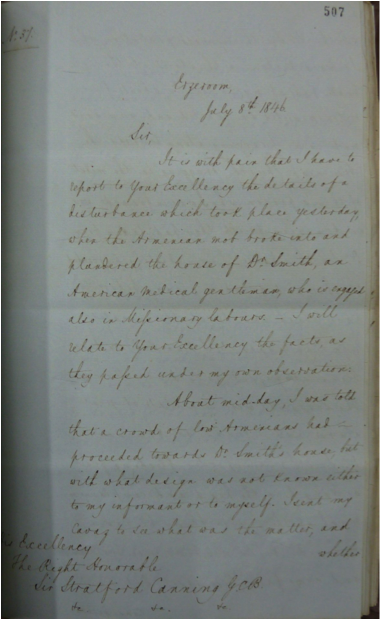 507
No. 37.
Erzeroom,
July 8th 1846.
Sir,
It is with pain that I have to
report to Your Excellency the details of a
disturbance which took place yesterday,
when the Armenian mob broke into and
plundered the house of Dr. Smith, an
American medical gentleman, who is engaged
also in Missionary labours. – I will
relate to Your Excellency the facts, as
they passed under my own observation.
About mid-day, I was told
that a crowd of low Armenians had
proceeded towards Dr. Smith's house, but
with what design was not known either
to my informant or to myself. I sent my
Cavaß to see what was the matter, and
whether
Excellency
The Right Honorable
Sir Stratford Canning G.C.B.
&c &c &c